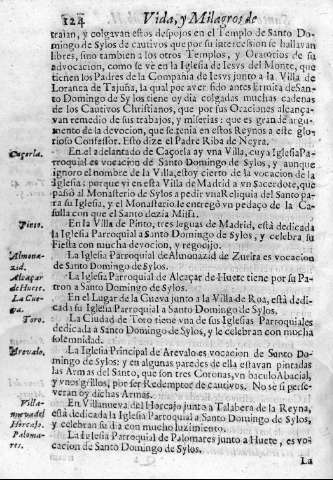 124 Vida, y Milagros de
traian, y colgavan estos despojos en el Templo de Santo Do-
mingo de Sylos de cautivos que por su intercession se hallavan
libres, sino tambien a los otros Templos, y Oratorios de su
advocacion, como se vè en la Iglesia de Iesvs del Monte, que
tienen los Padres de la Compañia de Iesvs junto à la Villa de
Loranca de Tajuña, la qual por aver sido antes Ermita de San-
to Domingo de Sylos tiene oy dia colgadas muchas cadenas
de los Cautivos Christianos, que por sus Oraciones alcança-
van remedio de sus trabajos, y miserias: que es grande argu-
mento de la devocion, que se tenia en estos Reynos a este glo-
rioso Confessor. Esto dize el Padre Riba de Neyra.
Caçorla.
En el adelantado de Caçorla ay vna Villa, cuya Iglesia Par-
roquial es vocacion de Santo Domingo de Sylos, y aunque
ignoro el nombre de la Villa, estoy cierto de la vocacion de la
Iglesia: porque vi en esta Villa de Madrid a vn Sacerdote, que
passò al Monasterio de Sylos a pedir vna Reliquia del Santo pa-
ra su Iglesia, y el Monasterio le entregò vn pedaço de la Ca-
sulla con que el Santo dezia Missa.
Pinto.
En la Villa de Pinto, tres leguas de Madrid, està dedicada
la Iglesia Parroquial a Santo Domingo de Sylos, y celebra su
Fiesta con mucha devocion, y regocijo.
Almona-
zid.
La Iglesia Parroquial de Almonazid de Zurita es vocacion
de Santo Domingo de Sylos.
Alcaçar
de Huete.
La Iglesia Parroquial de Alcaçar de Huete tiene por su Pa-
tron a Santo Domingo de Sylos.
La Cue-
va.
En el Lugar de la Cueva junto a la Villa de Roa, està dedi-
cada su Iglesia Parroquial a Santo Domingo de Sylos.
Toro.
La Ciudad de Toro tiene vna de sus Iglesias Parroquiales
dedicada a Santo Domingo de Sylos, y le celebran con mucha
solemnidad.
Arevalo.
La Iglesia Principal de Arevalo es vocacion de Santo Do-
mingo de Sylos: y en algunas paredes de ella estavan pintadas
las Armas del Santo, que son tres Coronas, vn baculo Abacial,
y vnos grillos, por ser Redemptor de cautivos. No se si perse-
veran oy dichas Armas.
Villa-
nueva del
Horcajo.
En Villanueva del Horcajo junto a Talabera de la Reyna,
està dedicada la Iglesia Parroquial a Santo Domingo de Sylos,
y celebran su dia con mucho luzimiento.
Paloma-
res.
La Iglesia Parroquial de Palomares junto a Huete, es vo-
cacion de Santo Domingo de Sylos.
La